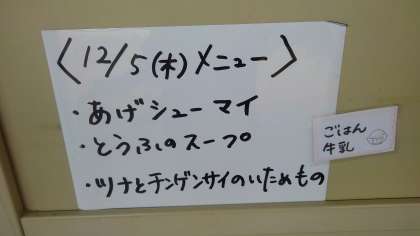 〈12/5(木)メニュー〉
・あげシューマイ
・とうふのスープ
・ツナとチンゲンサイのいためもの
ごはん
牛乳